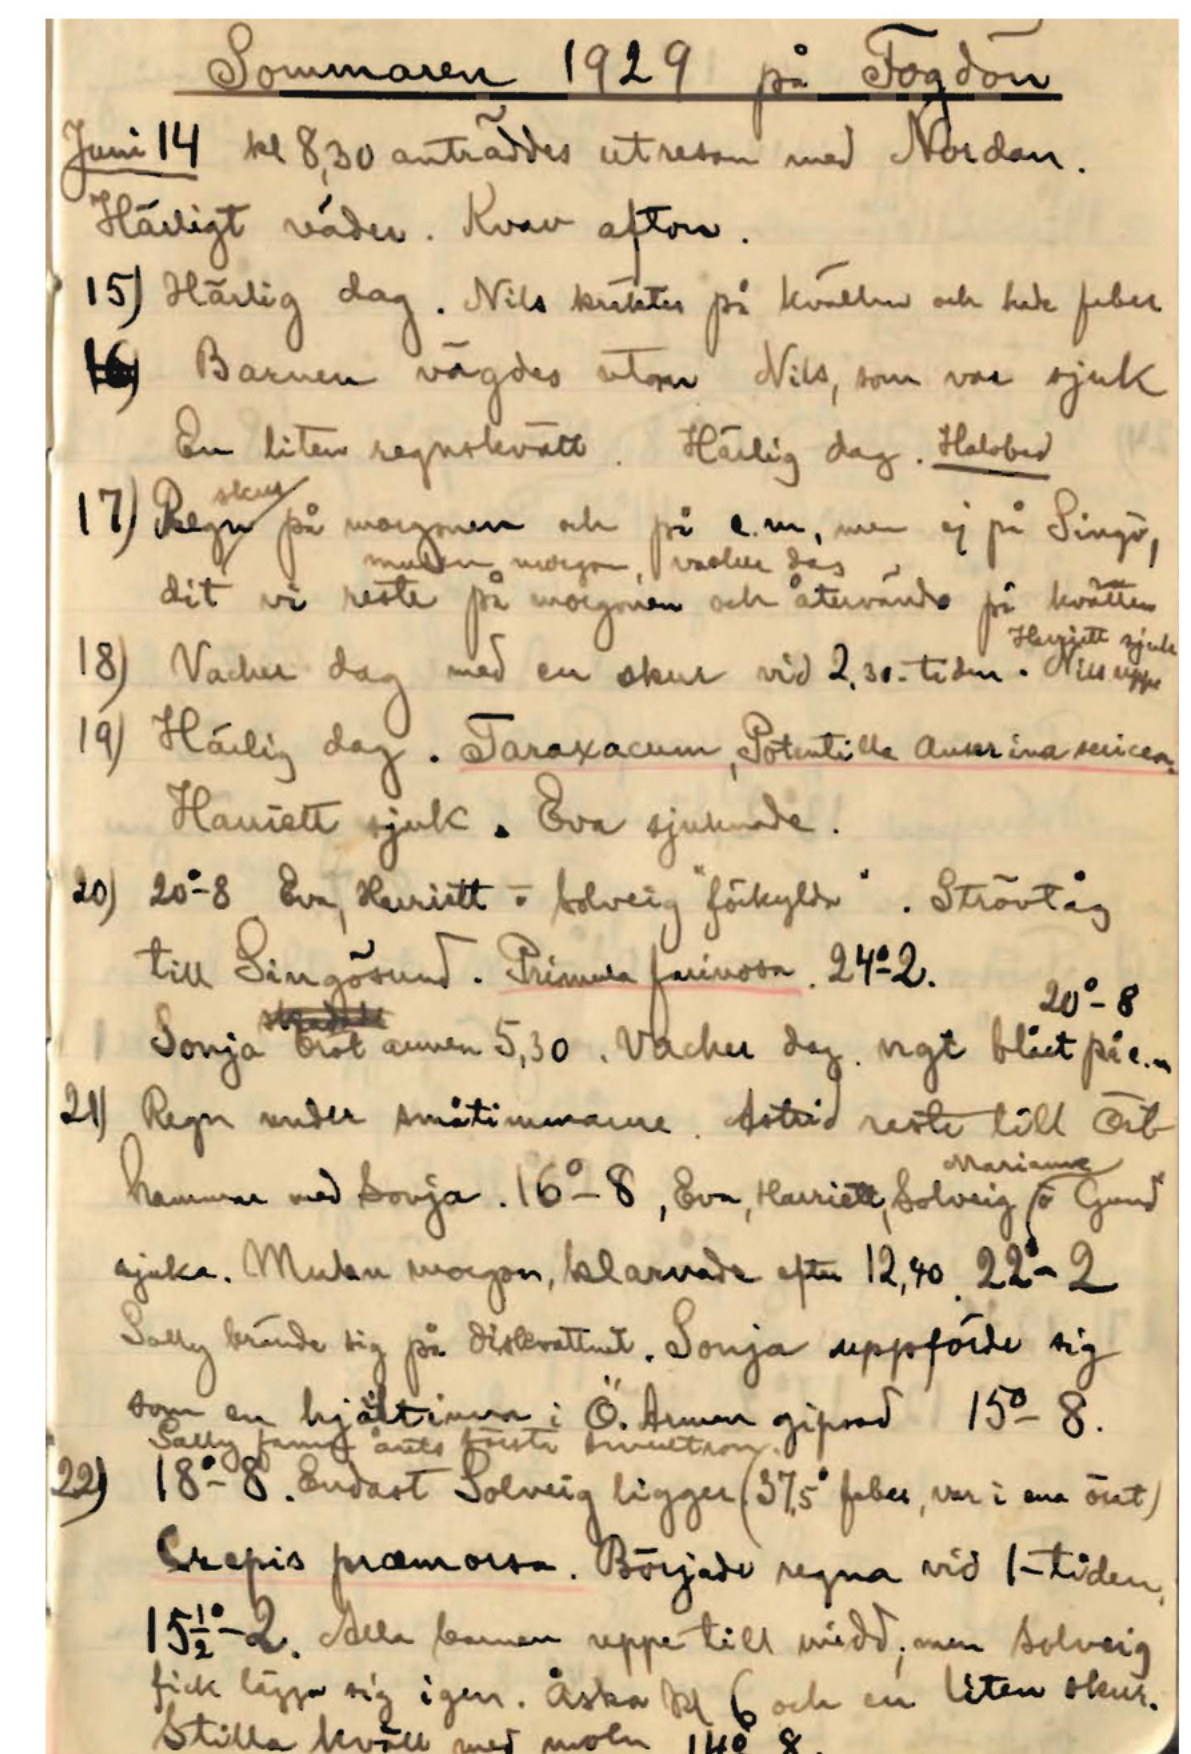 Sommaren 1929 på Fogdön
Juni 14 kl 8,30 anträddes utresan med Nordan.
Härligt väder. Kvav afton.
15) Härlig dag. Nils kräktes på kvällen och hade feber
16) Barnen vägdes utom Nils, som var sjuk
En liten regnskvätt. Härlig dag.
skur
17) Regn på morgonen och på e.m, men ej på Singö,
mulen morgon, vacker dag
dit vi reste på morgonen och återvände på kvällen
Harriett sjuk
18) Vacker dag med en skur vid 2,30-tiden. Nils uppe
19) Härlig dag. Taraxacum, Potentilla Anserina sericea.
Harriett sjuk. Eva sjuknade.
20) 20°-8 Eva, Harriett o Solveig "förkylda". Strövtåg
till Singösund. Primula farinosa. 24°-2.
20°-8
Sonja bröt armen 5,30. Vacker dag. ngt blåst på e.m
21) Regn under småtimmarne. Astrid reste till Öst
Marianne
hammar med Sonja. 16°-8, Eva, Harriett, Solveig o Gund
sjuka. Mulen morgon, klarnade efter 12,40. 22°-2
Sally brände sig på diskvattnet. Sonja uppförde sig
som en hjältinna i Ö. Armen gipsad 15°-8.
Sally fann årets första smultron.
22) 18°-8. Endast Solveig ligger (37,5° feber, var i ena örat)
Crepis præmorsa. Började regna vid 1-tiden.
15½°-2. Alla barnen uppe till midd, men Solveig
fick lägga sig igen. Åska kl 6 och en liten skur.
Stilla kväll med moln 14° 8.